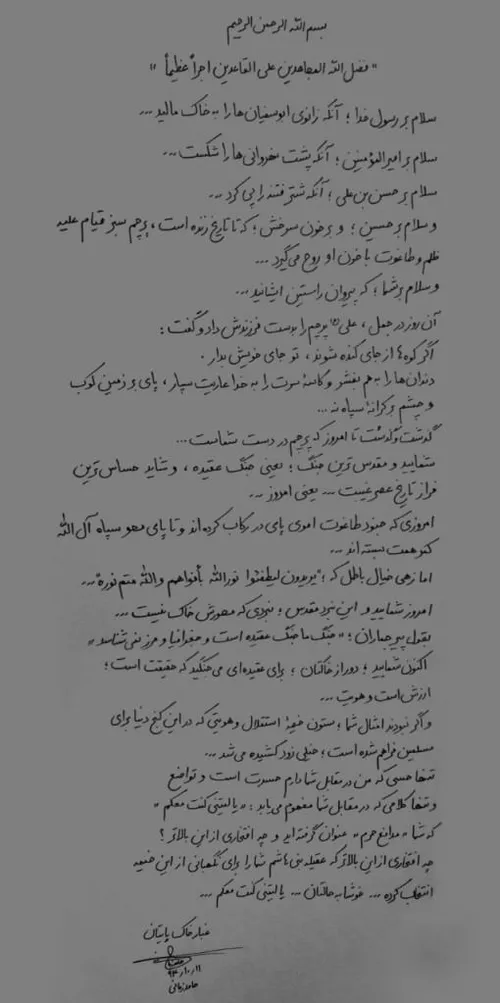 بسم الله الرحمن الرحیم
"فضل الله المجاهدین علی القاعدین اجراً عظیماً"
سلام بر رسول خدا ؛ آنکه زانوی ابوسفیان‌ها را به خاک مالید ...
سلام بر امیرالمؤمنین ؛ آنکه پشت مروانی‌ها را شکست ...
سلام بر حسن بن علی ؛ آنکه شتر فتنه را پی کرد ...
و سلام بر حسین ؛ و بر خون سرخش ؛ که تا تاریخ زنده است ، پرچم سبز قیام علیه
ظلم و طاغوت با خون او روح می‌گیرد ...
و سلام بر شما ؛ که پیروان راستین ایشانید ...
آن روز در جمل ، علی (ع) پرچم را بدست فرزندش داد و گفت :
اگر کوه‌ها از جای کنده شوند ، تو جای خویش بدار .
دندان‌ها را به هم بفشر و کاسهٔ سرت را به خدا عاریت سپار ، پای بر زمین کوب
و چشم بر کرانهٔ سپاه نه ...
گذشت و گذشت تا امروز که پرچم در دست شماست ...
شمایید و مقدس ترین جنگ ؛ یعنی جنگ عقیده ، و شاید حساس ترین
فراز تاریخ عصر غیبت ... یعنی امروز ...
امروزی که جنود طاغوت اموی پای در رکاب کرده‌اند و تا پای محو سپاه آل الله
کمر همت بسته‌اند ...
اما زهی خیال باطل که ؛ "یریدون لیطفئوا نورالله بأفواههم و الله متم نوره" ...
امروز شمایید و این نبرد مقدس ؛ نبردی که محورش خاک نیست ...
بقول پیر جماران ؛ "جنگ ما جنگ عقیده است و جغرافیا و مرز نمی‌شناسد"
اکنون شمایید ؛ دور از خاکتان ؛ برای عقیده‌ای می‌جنگید که حقیقت است ؛
ارزش است و هویت ...
و اگر نبودند امثال شما ؛ ستون خیمهٔ استقلال و هویتی که در این کنج دنیا برای
مسلمین فراهم شده است ؛ خیلی زود کشیده می‌شد ...
تنها حسی که من در مقابل شما دارم حسرت است و تواضع
و تنها کلامی که در مقابل شما مفهوم می‌یابد : "یا لیتنی کنت معکم"
که شما "مدافع حرم" عنوان گرفته‌اید و چه افتخاری از این بالاتر ؟
چه افتخاری از این بالاتر که عقیله بنی هاشم شما را برای نگهبانی از این خیمه
انتخاب کرده ... خوشا به حالتان ... یا لیتنی کنت معکم ...
غبار خاک پایتان
۹۴،۱۰،۱۱